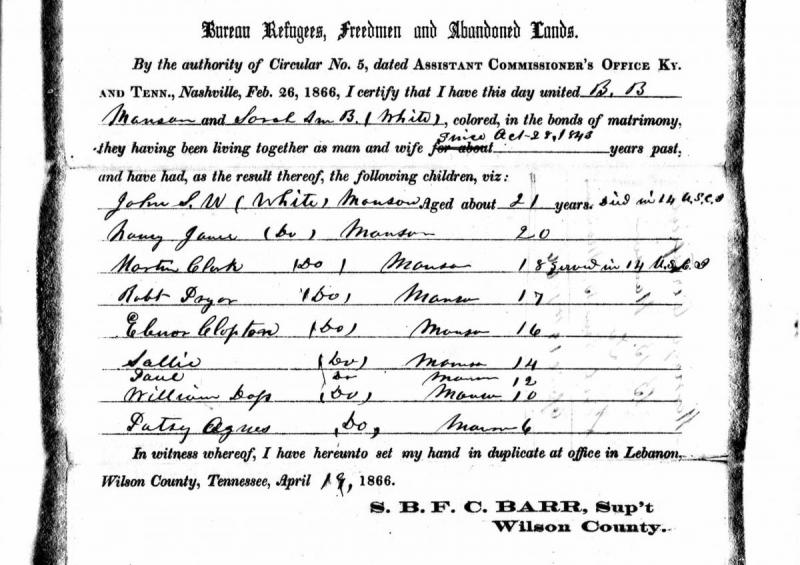 Bureau Refugees, Freedmen and Abandoned Lands.
By the authority of Circular No. 5, dated ASSISTANT COMMISSIONER'S OFFICE KY.
AND TENN., Nashville, Feb. 26, 1866, I certify that I have this day united B. B
Manson and Sarah Ann B. (White), colored, in the bonds of matrimony,
since Oct 28, 1843
they having been living together as man and wife for about years past,
and have had, as the result thereof, the following children, viz:
John S. W (White) Manson Aged about 21 years. Died in 14 U.S.C.I
Nancy Jane (Do) Manson 20
Martin Clark (Do) Manson 18 Served in 14 U.S.C.I
Robt Pryor (Do) Manson 17
Elenor Clopton (Do) Manson 16
Sallie (Do) Manson 14
Do Manson 12
William (Do) Manson 10
Patsy Agnes (Do) Manson 6
In witness whereof, I have hereunto set my hand in duplicate at office in Lebanon,
Wilson County, Tennessee, April 19, 1866.
S. B. F. C. BARR, Sup't
Wilson County.